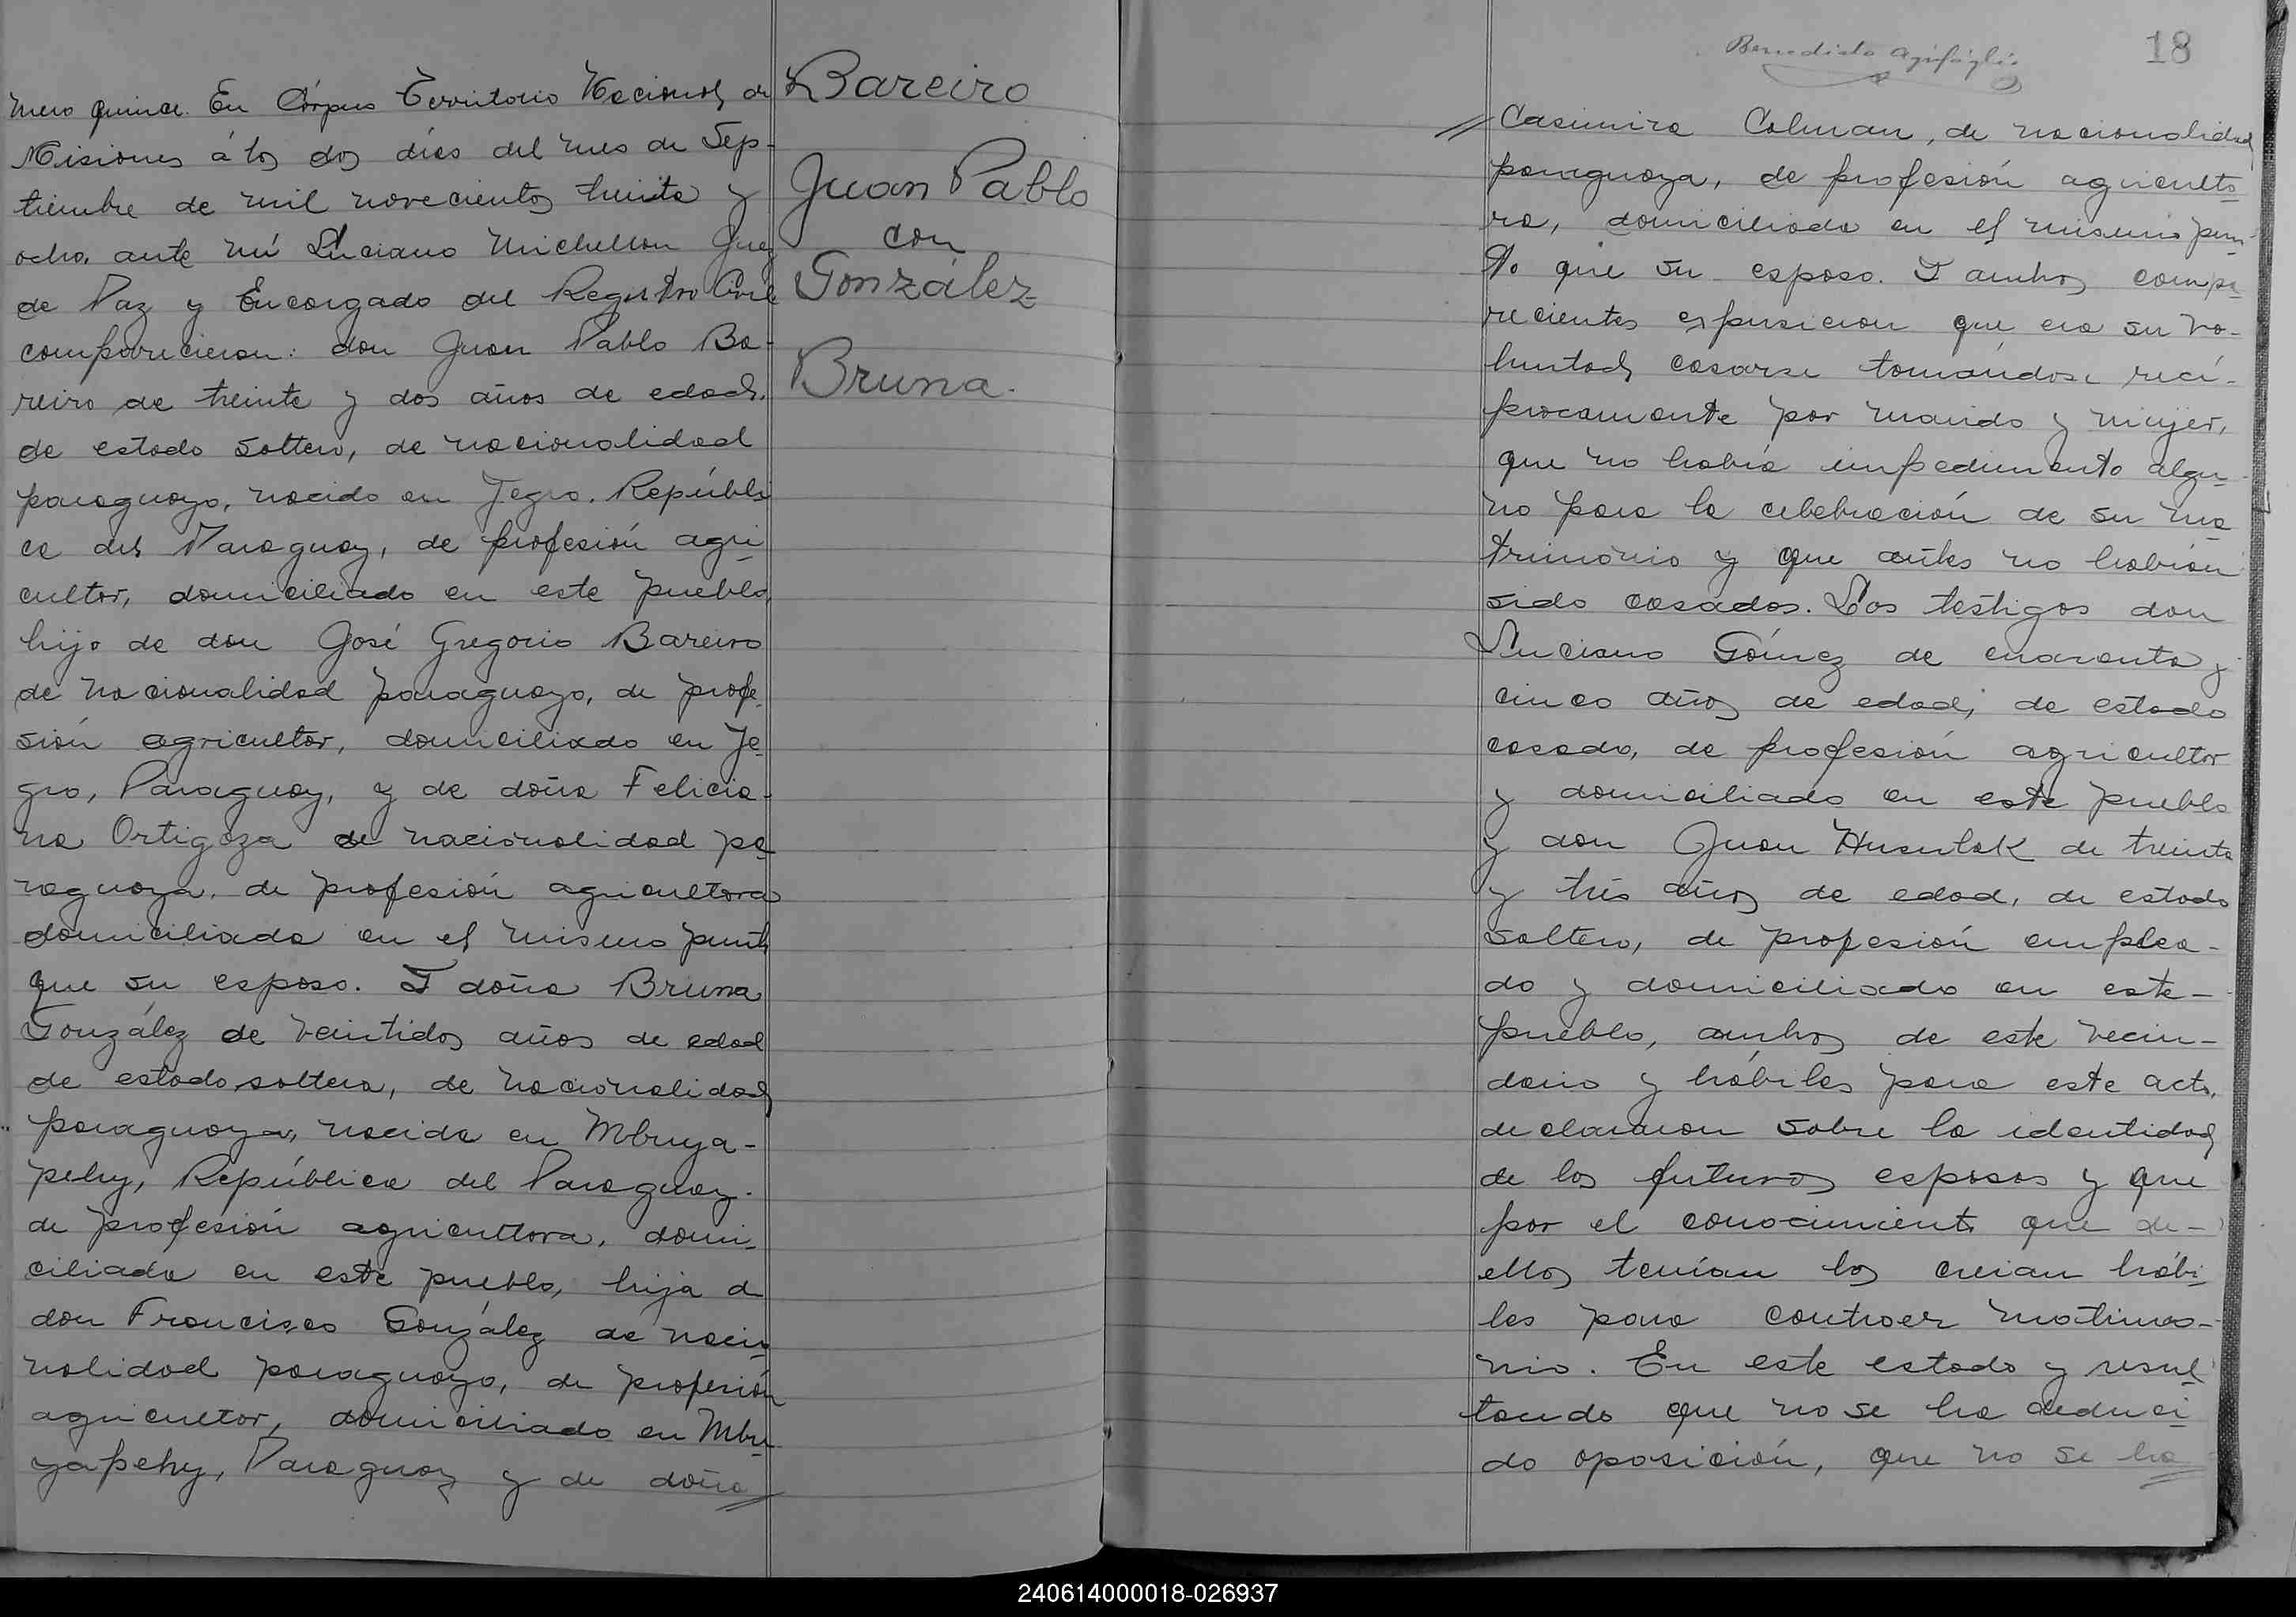 mero quince. En Corpus Territorio Nacional de
Misiones á los dos días del mes de Sep-
tiembre de mil novecientos treinta y
ocho. ante mí Luciano Michelson Juez
de Paz y Encargado del Registro Civil
comparecieron: don Juan Pablo Ba-
reiro de treinta y dos años de edad.
de estado soltero, de nacionalidad
paraguayo, nacido en Yegro. Repúbli
ca del Paraguay, de profesión agri
cultor, domiciliado en este pueblo,
hijo de don José Gregorio Bareiro
de nacionalidad paraguayo, de profe
sión agricultor, domiciliado en Ye-
gro, Paraguay, y de doña Felicia-
na Ortigoza de nacionalidad pa
raguaya. de profesión agricultora
domiciliada en el mismo punto
que su esposo. I doña Bruna
González de veintidos años de edad
de estado soltera, de nacionalidad
paraguaya, nacida en Mbuya-
pehy, República del Paraguay.
de profesión agricultora, domi-
ciliada en este pueblo, hija de
don Francisco González de nacio
nalidad paraguayo, de profesión
agricultor, domiciliado en Mbu
yapehy, Paraguay y de doña
Bareiro
Juan Pablo
con
González
Bruna.
18
Benedicto
Casimira Colman, de nacionalidad
paraguaya, de profesión agriculto
ra, domiciliada en el mismo pun
to que su esposo. I ambos compa
recientes expusieron que era su vo-
luntad casarse tomándose recí-
procamente por marido y mujer,
que no había impedimento algu-
no para la celebración de su ma
trimonio y que antes no habían
sido casados. Los testigos don
Luciano Gómez de cuarenta y
cinco años de edad, de estado
casado, de profesión agricultor
y domiciliado en este pueblo
y don Juan de treinta
y tres años de edad, de estado
soltero, de profesión emplea-
do y domiciliado en este-
pueblo, ambos de este vecin-
dario y hábiles para este acto,
declararon sobre la identidad
de los futuros esposos y que
por el conocimiento que de-
ellos tenían los creian hábi-
les para contraer matrimo-
nio. En este estado y resul
tando que no se ha deduci
do oposición, que no se ha
240614000018-026937